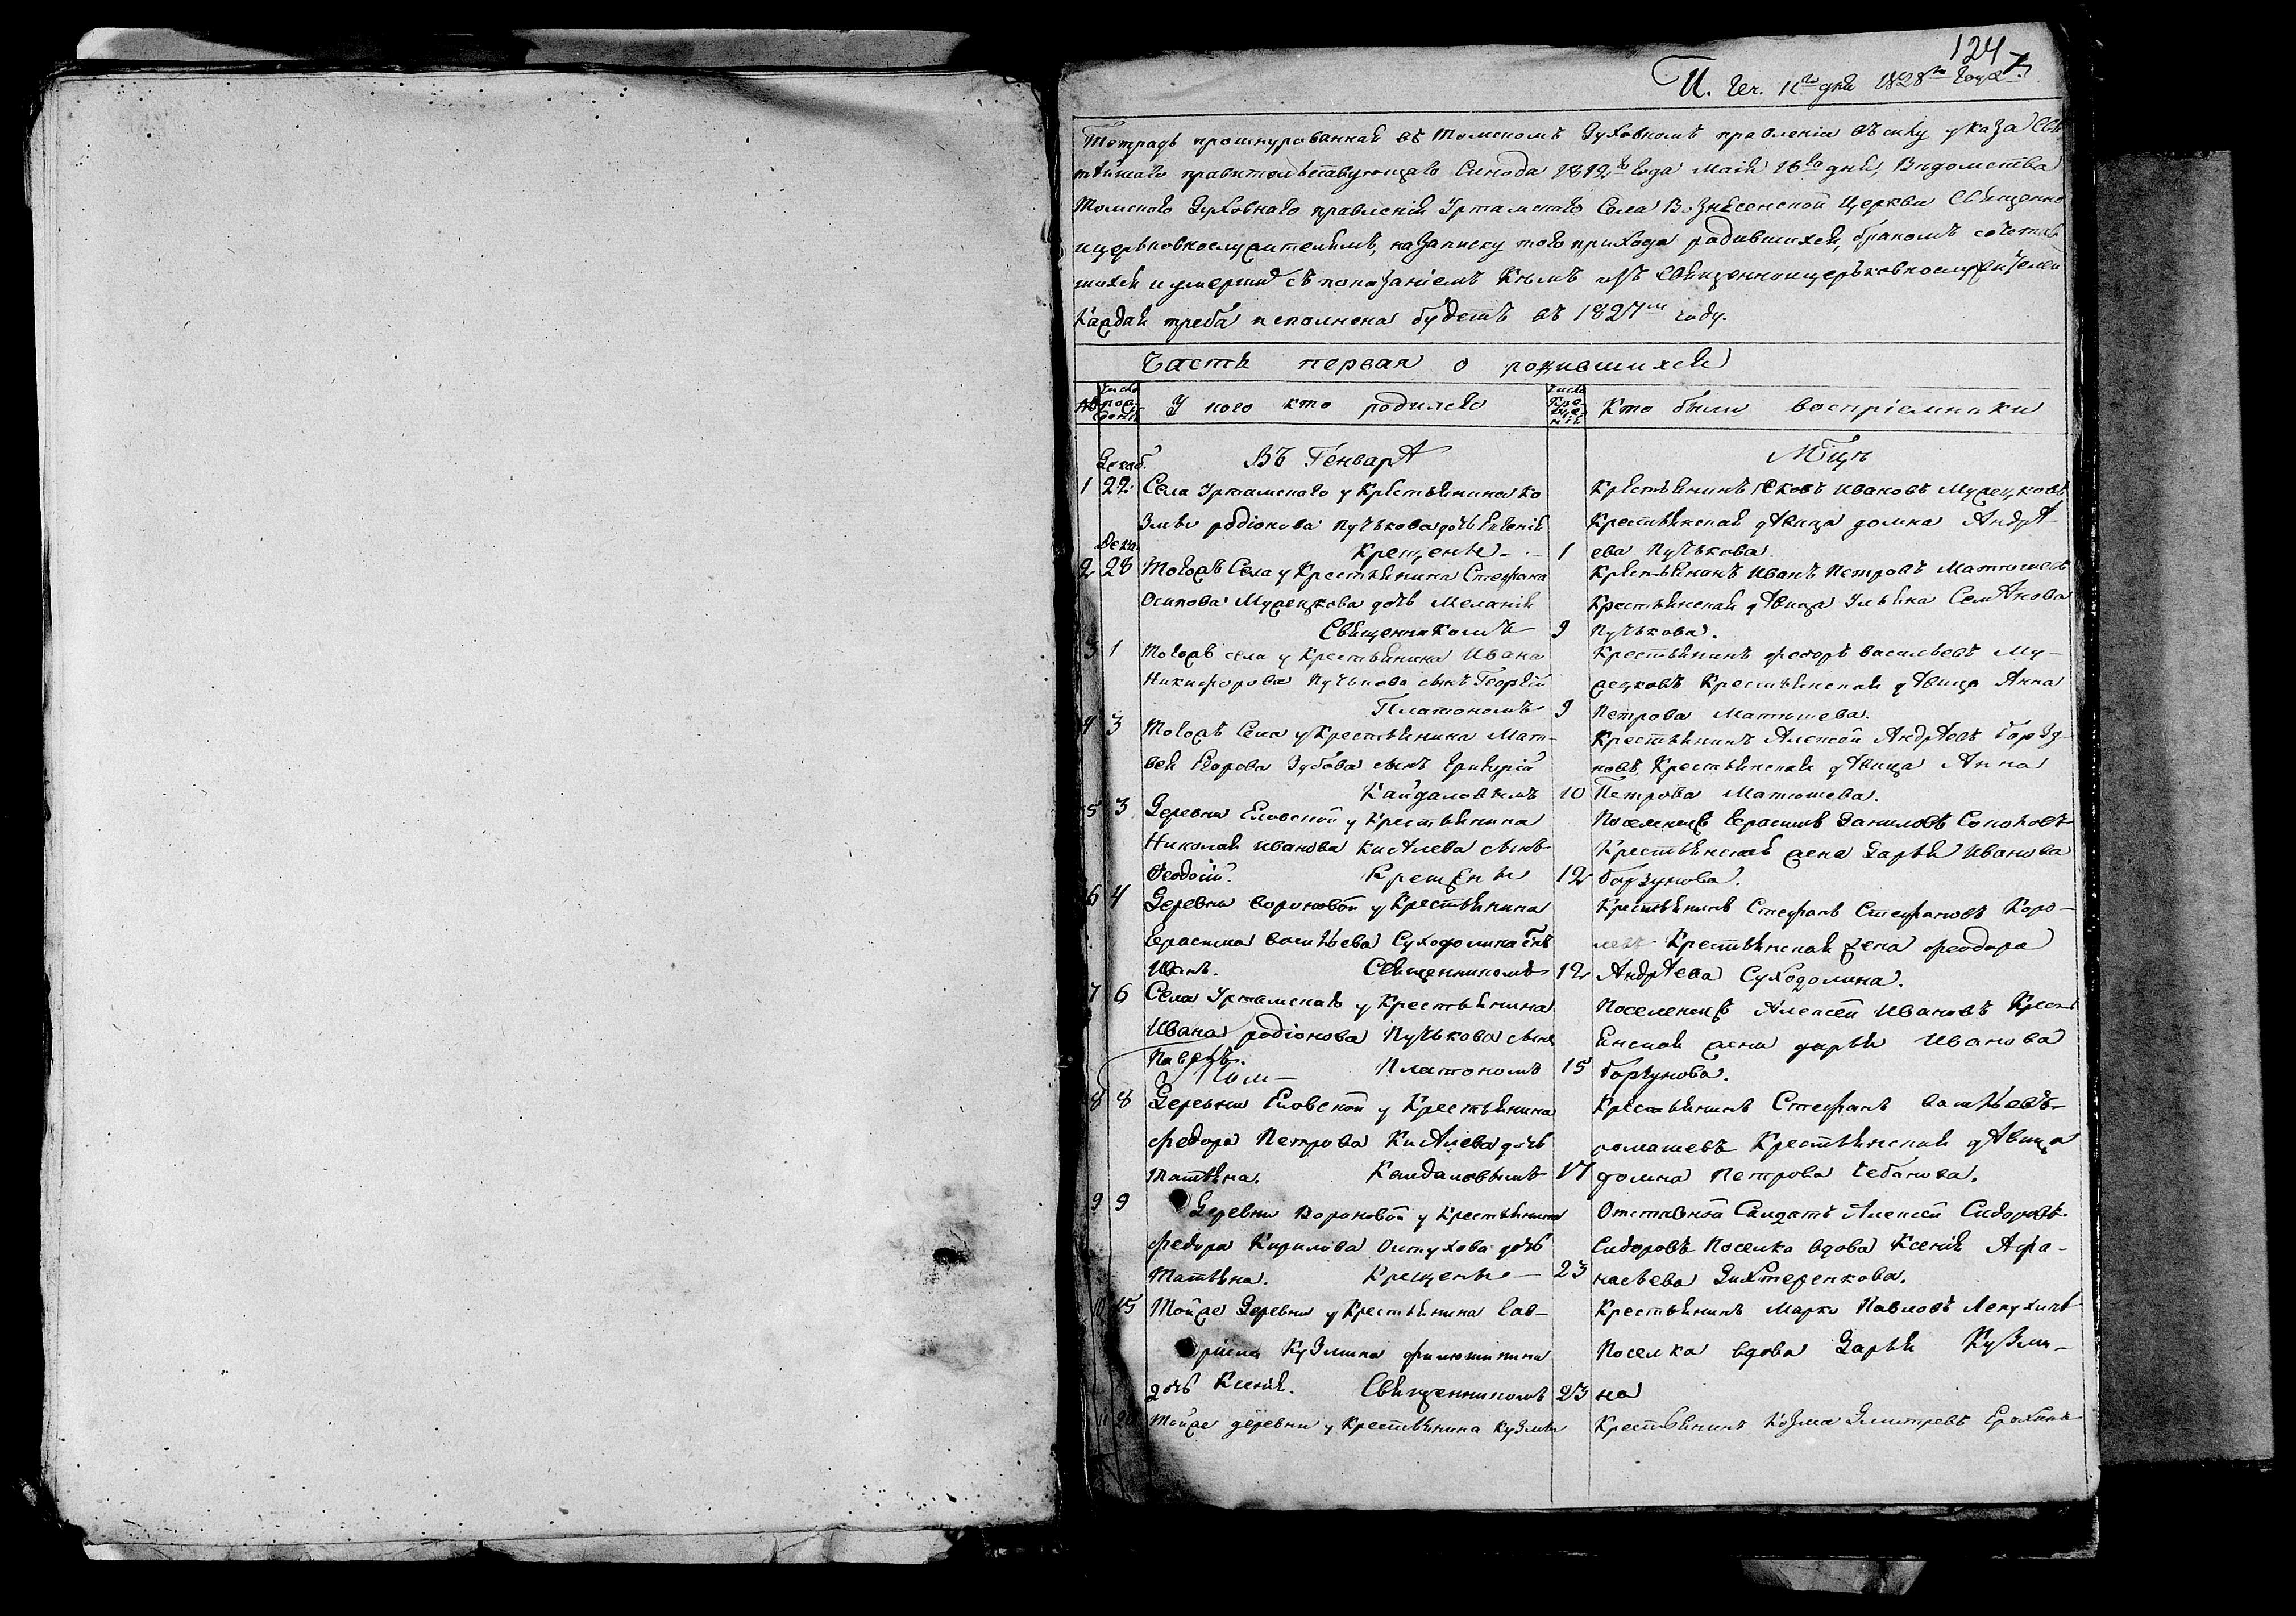 124
1828го года
Тетрадь прошнурованная въ Томскомъ Духовномъ правленіи въ силу указа Свя
тѣйшаго правительствующаго Синода 1812го года маія 16го дня, Вѣдомства
Томскаго Духовнаго правленія Уртамскаго Села Вознесенской Церкви Священно
ицерьковнослужителямъ, на записку того прихода родившихся, бракомъ сочетав
шихся и умерших съ показаніемъ Кѣмъ изъ священноицерьковнослужителей
Каждая треба исполнена будетъ въ 1827м году.
Часть первая о родившихся
№ Число рож денія У кого кто родился Число Кре ще нія Кто были воспріемники
Декаб. Въ Генварѣ Мцѣ
1 22 Села Уртамскаго у Крестьянина Ко
змы родіонова Пучькова дочь Евгенія
Крещены 1
Крестьянинъ Яковъ Ивановъ Мужецковъ
Крестьянская дѣвица домна Андрѣ
ева Пучькова.
Дека.
2 28 Тогожъ Села у Крестьянина Стефана
Осипова Мужецкова дочь Меланія
Священникомъ 9
Крестьянинъ Иванъ Петровъ Матюшевъ
Крестьянская дѣвица Ульяна Семѣнова
Пучькова.
3 1 Тогожъ села у Крестьянина Ивана
Никифорова Пучькова сынъ Георгій
Платономъ 9
Крестьянинъ федоръ Васильевъ Му-
жецковъ Крестьянская дѣвица Анна
Петрова Матюшева.
4 3 Тогожъ Села у Крестьянина Мат-
вея Егорова Зубова сынъ Григорій
Кайдаловымъ 10
Крестьянинъ Алексѣй Андрѣевъ Борзу-
новъ, Крестьянская дѣвица Анна
Петрова Матюшева.
5 3 Деревни Еловской у Крестьянина
Николая Иванова Кисѣлева сынъ
Феодосій. Крещены 12
Поселенецъ Герасимъ Даниловъ
Крестьянская жена Дарья Иванова
Борзунова.
6 4 Деревни Вороновой у Крестьянина
Герасима Васильева Суходолина Снъ
Иванъ. Священникомъ 12
Крестьянинъ Стефанъ Стефановъ Коро-
левъ Крестьянская жена феодора
Андрѣева Суходолина.
7 6 Села Уртамскаго у Крестьянина
Ивана родіонова Пучькова сынъ
Павелъ. Платономъ 15
Поселенецъ Алексѣй Ивановъ Крест
янская жена дарья Иванова
Борзунова.
8 8 Деревни Еловской у Крестьянина
федора Петрова Кисѣлева дочь
Татьяна. Кайдаловымъ 17
Крестьянинъ Стефанъ Васильевъ
ромашевъ Крестьянская дѣвица
домна Петрова Чебакова.
9 9 Деревни Вороновой у Крестьянина
федора Кирилова дочь
Татьяна. Крещены 23
Отставной Салдатъ Алексѣй Сидоровъ
Сидоровъ Поселка вдова Ксенія Афа-
насьева
10 15 Тойже Деревни у Крестьянина
Кузмина
дочь Ксенія. Священникомъ 23
Крестьянинъ Марко Павловъ
Поселка вдова Дарья Кузми-
на
11 Тойже деревни у Крестьянина Кузмы
Крестьянинъ Козма Дмитревъ Ерохинъ